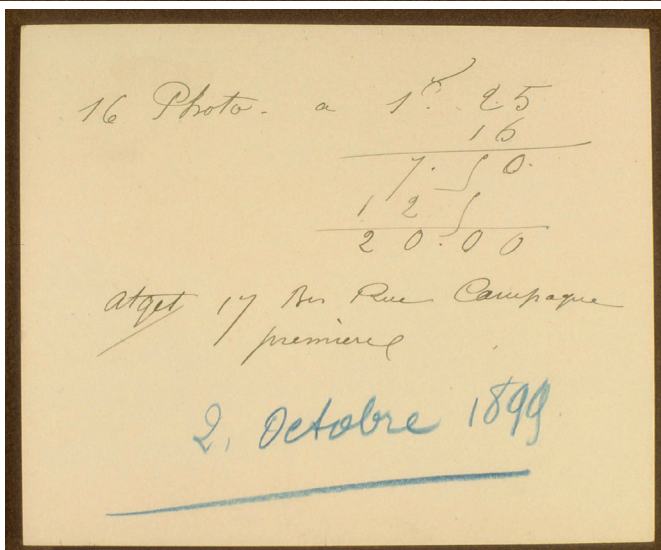 16 Photo. a 1f. 25
16
7. 50.
12 5
20.00
atget 17 Bis Rue Campagne
première
2, Octobre 1899